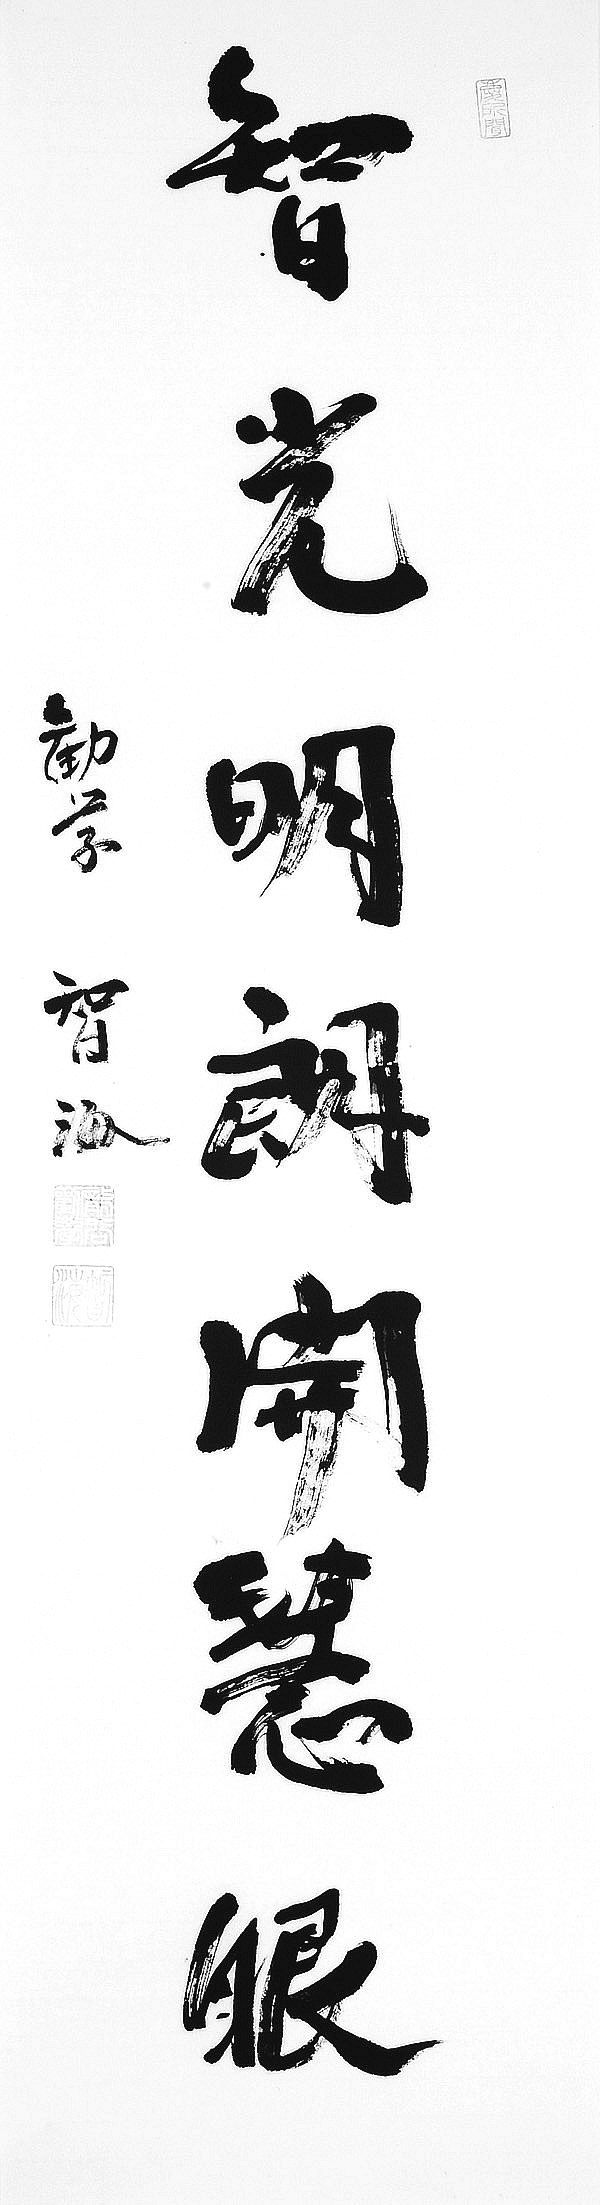 智光明朗開慧眼
勧学 智海